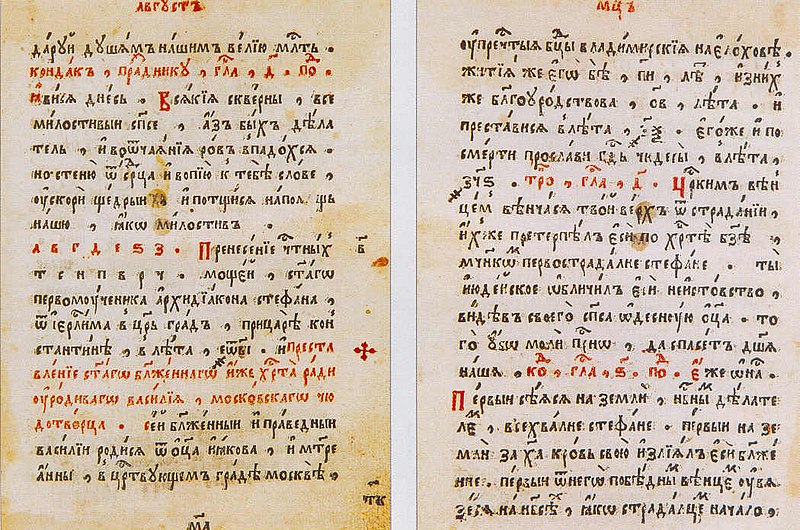 АВГУСТЪ
даруй душамъ нашимъ велїю млть .
кондакъ , празднику , гла , д . по .
вися днесь . Всякїя скверны , все
милостивый спсе , азъ быхъ дѣла
тель , и во ѿчаянїя ровъ впадохся .
но стеню ѿ срца и вопїю к тебѣ слове ,
ускори щедрый и потщися на пол шь
нашю , ꙗкѡ милостивъ .
А В Г Д Е Ѕ З . Пренесенїе чтныхъ
т с и п в р ч . мощей , стаго
первомоученика архидїакона стефана ,
ѿ їерлима в црь градъ , при царѣ кон
стантинѣ , в лѣта , . и преста
вленїе стагѡ блженнагѡ иже хрта ради
уродивагѡ василїа , московскагѡ чю
дотворца . сей блженный и праведный
василїи родися ѿ оца иꙗкова , и мтре
анны , в цртвующемъ градѣ москвѣ ,
МЦЪ
у пречтыя бцы владимирскїя на елоховѣ .
житїя же егѡ бѣ , пи , лѣ , из них
же благоуродствова , ов , лѣта . и
преставися в лѣта , . его же и по
смерти прослави гдь чюдесы , в лѣта ,
зчѕ . тро , гла , д . Црким вѣн
цем вѣнчася твой верхъ ѿ страданїи ,
их же претерпѣлъ еси по хртѣ бзѣ ,
мчнкѡм первострадалне стефане . ты
июдейское ѡбличилъ еси неистовство ,
видѣвъ своего спса ѡдесную оца . то
го убѡ моли прнѡ , да спасетъ дша
наша , ко , гла , ѕ . по . еже ѡ на .
Первый сѣяся на земли , нбный дѣлате
ле , всехвалне стефане . первый на зе
мли за ха кровь свою излїялъ еси блже
не . первый ѿ негѡ побѣдны вѣнце увя
зеся на нбсѣ , ꙗкѡ страдалце начало ,